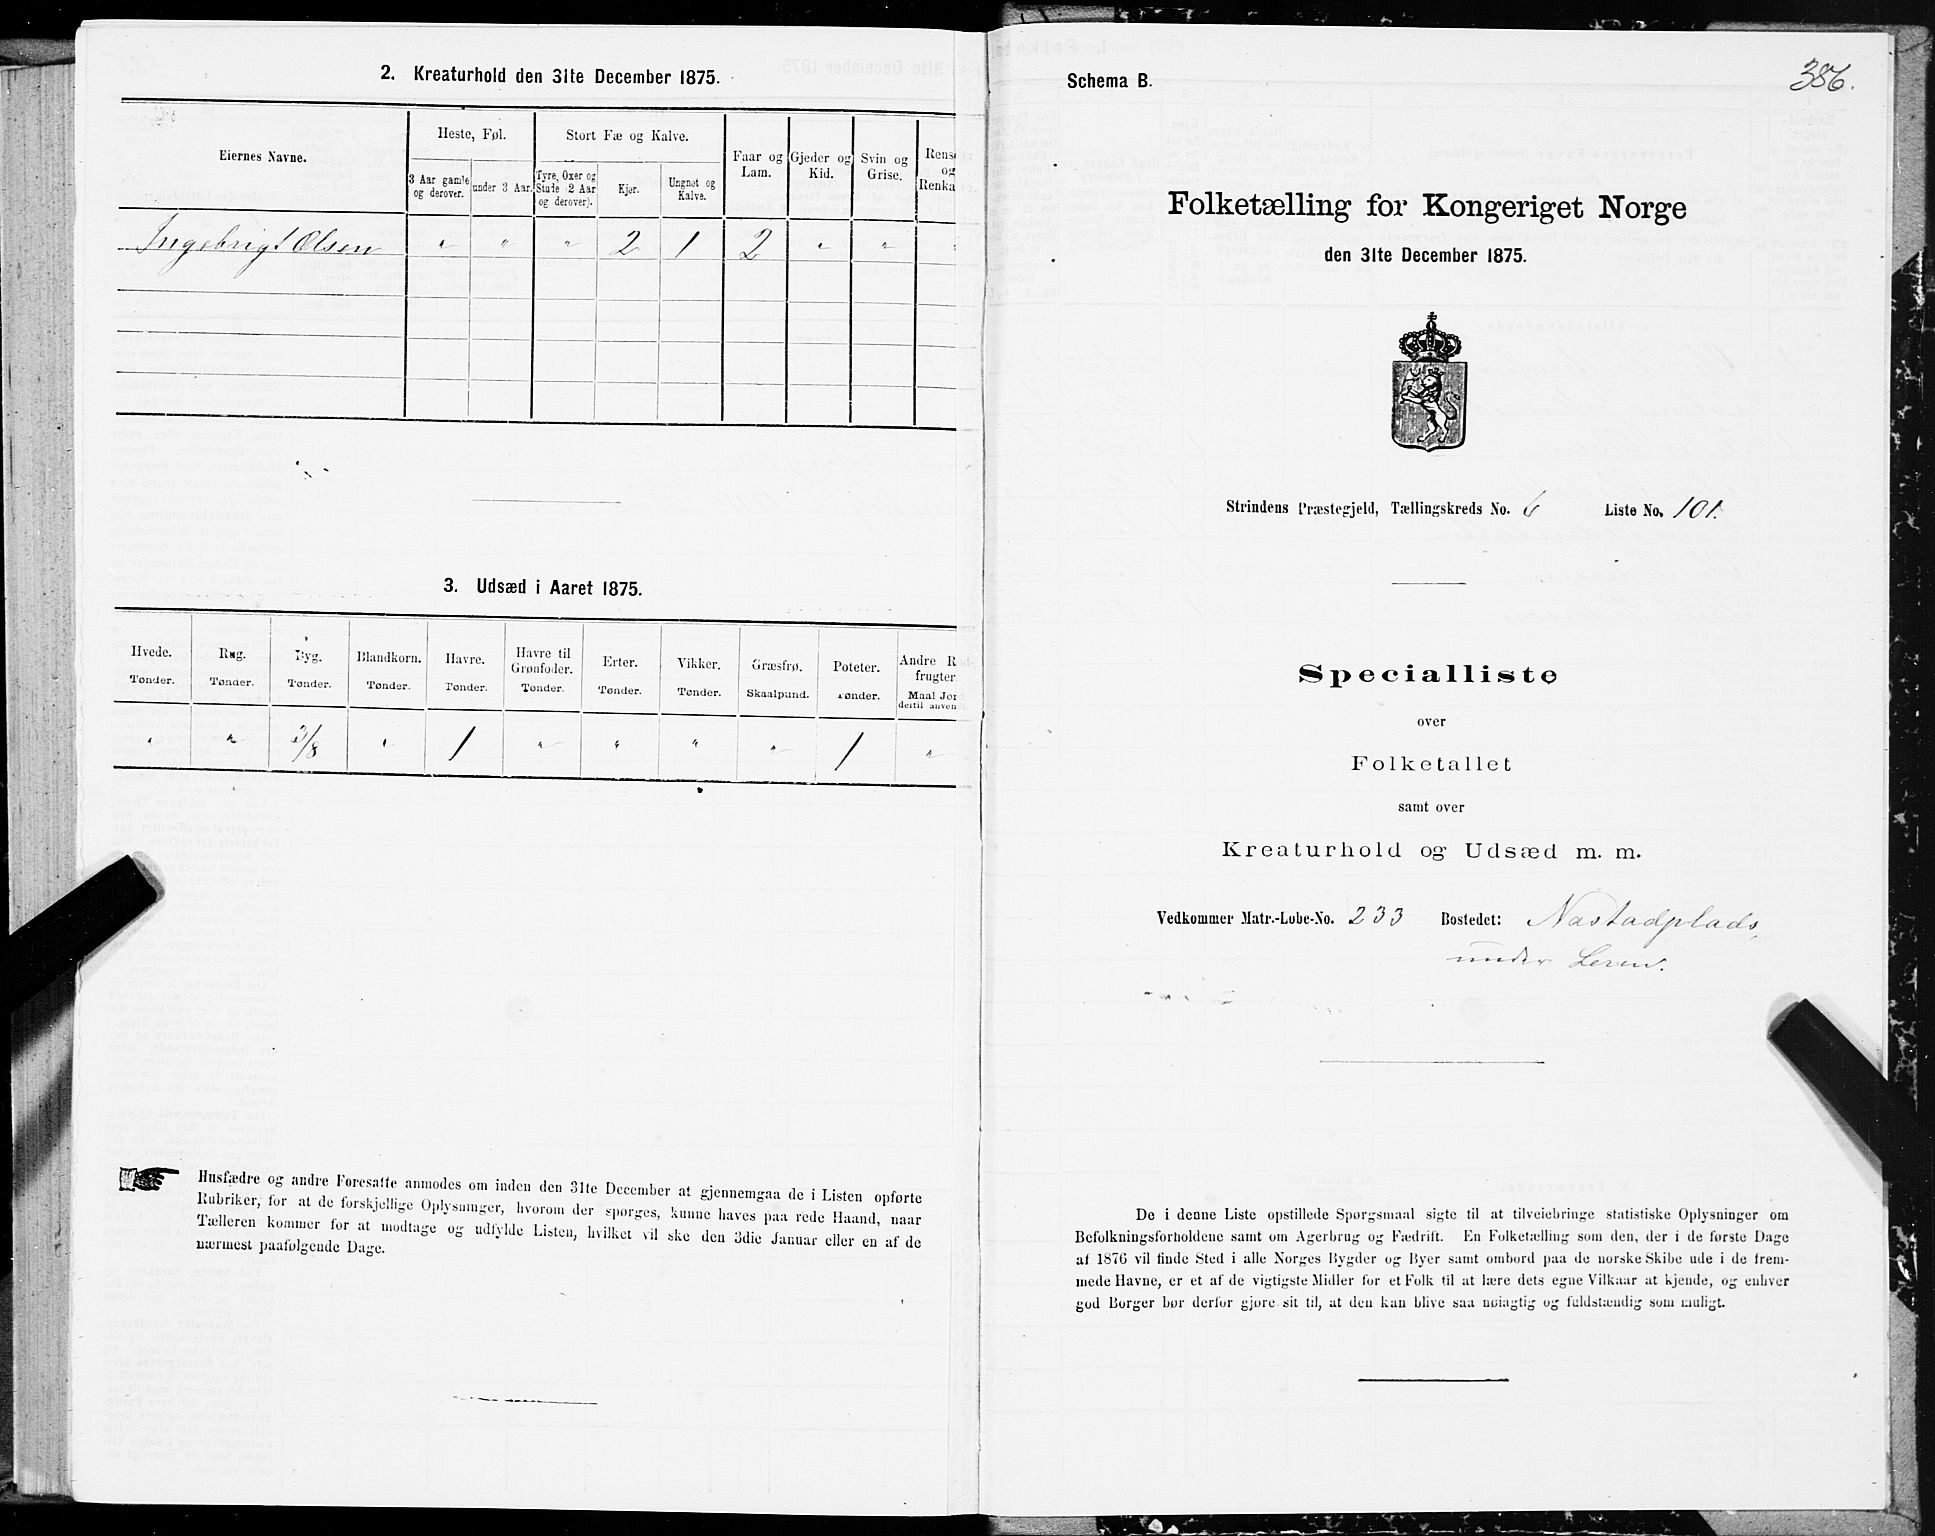 2. Kreaturhold den 31te December 1875.
Eiernes Navne.
Heste, Føl.
Stort Fæ og Kalve.
Faar og Lam.
Gjeder og Kid.
Svin og Grise.
Rens
og
Renka
3 Aar gamle og derover.
under 3 Aar.
Tyre, Oxer og Stude (2 Aar og derover).
Kjør.
Ungnøt og Kalve.
Ingebrigt Olsen " " " 2 1 2 " " "
3. Udsæd i Aaret 1875.
Hvede. Rug. Byg. Blandkorn. Havre. Havre til Grønfoder. Erter. Vikker. Græsfrø. Poteter. Andre Rodfrugter
Tønder. Tønder. Tønder. Tønder. Tønder. Tønder. Tønder. Tønder. Skaalpund. Tønder. Maal Jor
dertil anven
" " 3/8 " 1 " " " " 1 "
Husfædre og andre Foresatte anmodes om inden den 31te December at gjennemgaa de i Listen opførte
Rubriker, for at de forskjellige Oplysninger, hvorom der spørges, kunne haves paa rede Haand, naar
Tælleren kommer for at modtage og udfylde Listen, hvilket vil ske den 3die Januar eller en af de
nærmest paafølgende Dage.
386.
Schema B.
Folketælling for Kongeriget Norge
den 31te December 1875.
Strindens Præstegjeld, Tællingskreds No. 6 Liste No. 101.
Specialliste
over
Folketallet
samt over
Kreaturhold og Udsæd m. m.
Vedkommer Matr.-Løbe-No. 233 Bostedet: Nastadplads,
under Leren.
De i denne Liste opstillede Spørgsmaal sigte til at tilveiebringe statistiske Oplysninger om
Befolkningsforholdene samt om Agerbrug og Fædrift. En Folketælling som den, der i de første Dage
af 1876 vil finde Sted i alle Norges Bygder og Byer samt ombord paa de norske Skibe ude i de frem-
mede Havne, er et af de vigtigste Midler for et Folk til at lære dets egne Vilkaar at kjende, og enhver
god Borger bør derfor gjøre sit til, at den kan blive saa nøiagtig og fuldstændig som muligt.